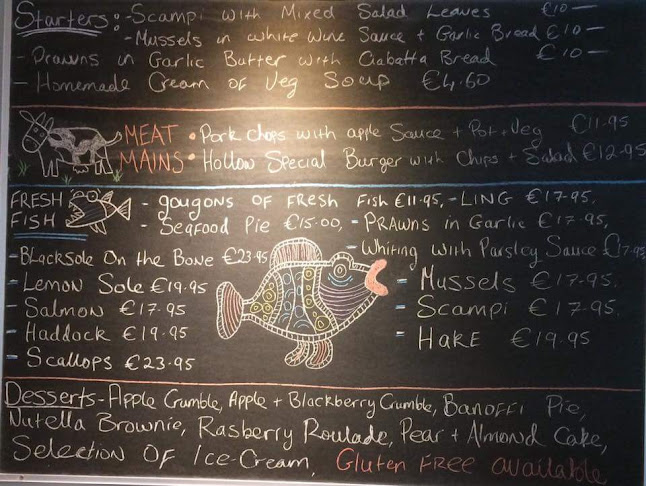 Starters: - Scampi with Mixed Salad Leaves €10—
- Mussels in white wine Sauce + Garlic Bread €10—
- Prawns in Garlic Butter with Ciabatta Bread €10—
- Homemade Cream of Veg Soup €4.60
MEAT • Pork chops with apple Sauce + Pot + Veg €11-95
MAINS • Hollow Special Burger with Chips + Salad €12-95
FRESH - gougons of FResh Fish €11.95, - LING €17-95,
FISH - Seafood Pie €15.00, - PRAWNS in Garlic €17.95,
- Whiting with Parsley Sauce €17.95
- Blacksole On the Bone €23.95
- Lemon Sole €19.95
- Mussels €17.95.
- Salmon €17.95
- Scampi €17.95.
- Haddock €19.95
- HAKE €19.95
- Scallops €23.95
Desserts - Apple Crumble, Apple + Blackberry Crumble, Banoffi Pie,
Nutella Brownie, Rasberry Roulade, Pear + Almond Cake,
Selection OF Ice-Cream, Gluten FREE available